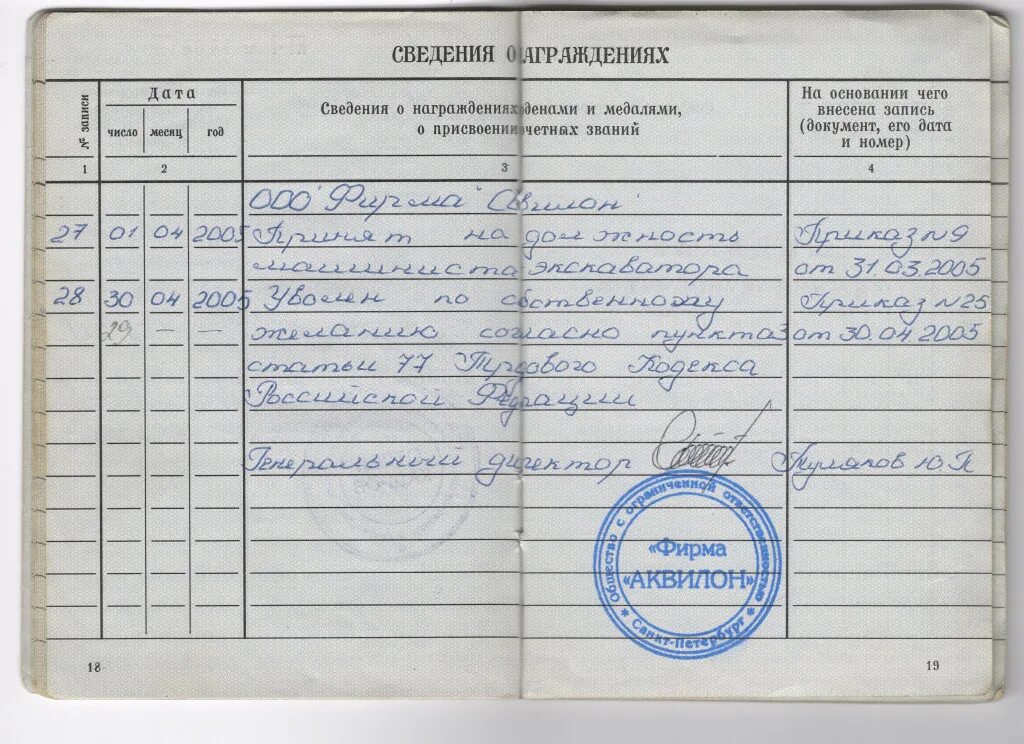 СВЕДЕНИЯ О АГРАЖДЕНИЯХ
№ записи
Дата
число месяц год
Сведения о награждениях денами и медалями,
о присвоении четных званий
На основании чего
внесена запись
(документ, его дата
и номер)
1 2 3 4
ООО "Фирма "Аквилон"
27 01 04 2005 Принят на должность Приказ №9
машиниста экскаватора от 31.03.2005
28 30 04 2005 Уволен по собственному Приказ №25
29 — — желанию согласно пункта 3 от 30.04.2005
статьи 77 Трудового Кодекса
Российской Федерации
Генеральный директор Туляков Ю П
Общество с ограниченной ответственностью
«Фирма
«АКВИЛОН»
* Санкт-Петербург *
18
19